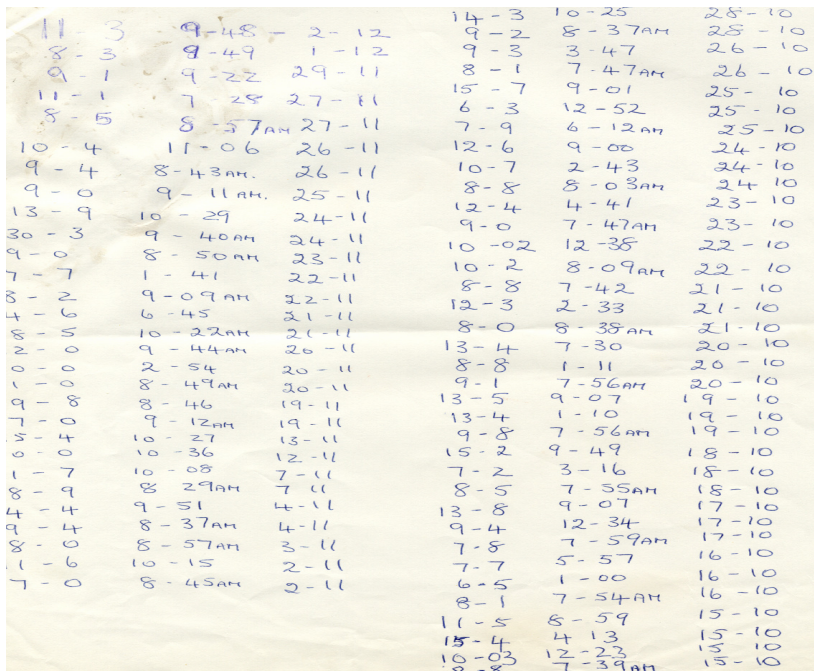 11 - 3 9-48 - 2-12
8 - 3 9-49 1-12
9 - 1 9-22 29-11
11 - 1 7 28 27-11
8 - 5 8-57AM 27-11
10 - 4 11-06 26-11
9 - 4 8-43AM. 26-11
9 - 0 9-11AM. 25-11
13 - 9 10-29 24-11
30 - 3 9-40AM 24-11
9 - 0 8-50AM 23-11
7 - 7 1-41 22-11
8 - 2 9-09AM 22-11
4 - 6 6-45 21-11
8 - 5 10-22AM 21-11
2 - 0 9-44AM 20-11
0 - 0 2-54 20-11
1 - 0 8-49AM 20-11
9 - 8 8-46 19-11
7 - 0 9-12AM 19-11
5 - 4 10-27 13-11
0 - 0 10-36 12-11
1 - 7 10-08 7-11
8 - 9 8 29AM 7 11
4 - 4 9-51 4-11
9 - 4 8-37AM 4-11
8 - 0 8-57AM 3-11
1 - 6 10-15 2-11
7 - 0 8-45AM 2-11
14 - 3 10-25 28-10
9 - 2 8-37AM 28-10
9 - 3 3-47 26-10
8 - 1 7-47AM 26-10
15 - 7 9-01 25-10
6 - 3 12-52 25-10
7 - 9 6-12AM 25-10
12 - 6 9-00 24-10
10 - 7 2-43 24-10
8 - 8 8-03AM 24 10
12 - 4 4-41 23-10
9 - 0 7-47AM 23-10
10 - 02 12-38 22-10
10 - 2 8-09AM 22-10
8 - 8 7-42 21-10
12 - 3 2-33 21-10
8 - 0 8-38AM 21-10
13 - 4 7-30 20-10
8 - 8 1-11 20-10
9 - 1 7-56AM 20-10
13 - 5 9-07 19-10
13 - 4 1-10 19-10
9 - 8 7-56AM 19-10
15 - 2 9-49 18-10
7 - 2 3-16 18-10
8 - 5 7-55AM 18-10
13 - 8 9-07 17-10
9 - 4 12-34 17-10
7 - 8 7-59AM 17-10
7 - 7 5-57 16-10
6 - 5 1-00 16-10
8 - 1 7-54AM 16-10
11 - 5 8-59 15-10
15 - 4 4 13 15-10
10 - 03 12-23 15-10
8 - 8 7-39AM 15-10